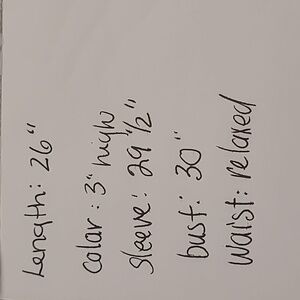 Length: 26"
colar: 3" high
sleeve: 29 1/2"
bust: 30"
waist: relaxed